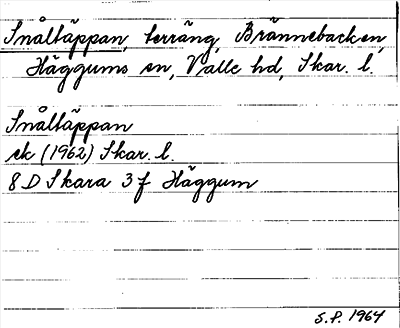 Snåltäppan, terräng, Brännebacken,
Häggums sn, Valle hd, Skar. l.
Snåltäppan
ek (1962) Skar. l.
8 D Skara 3 f Häggum
S.P. 1964